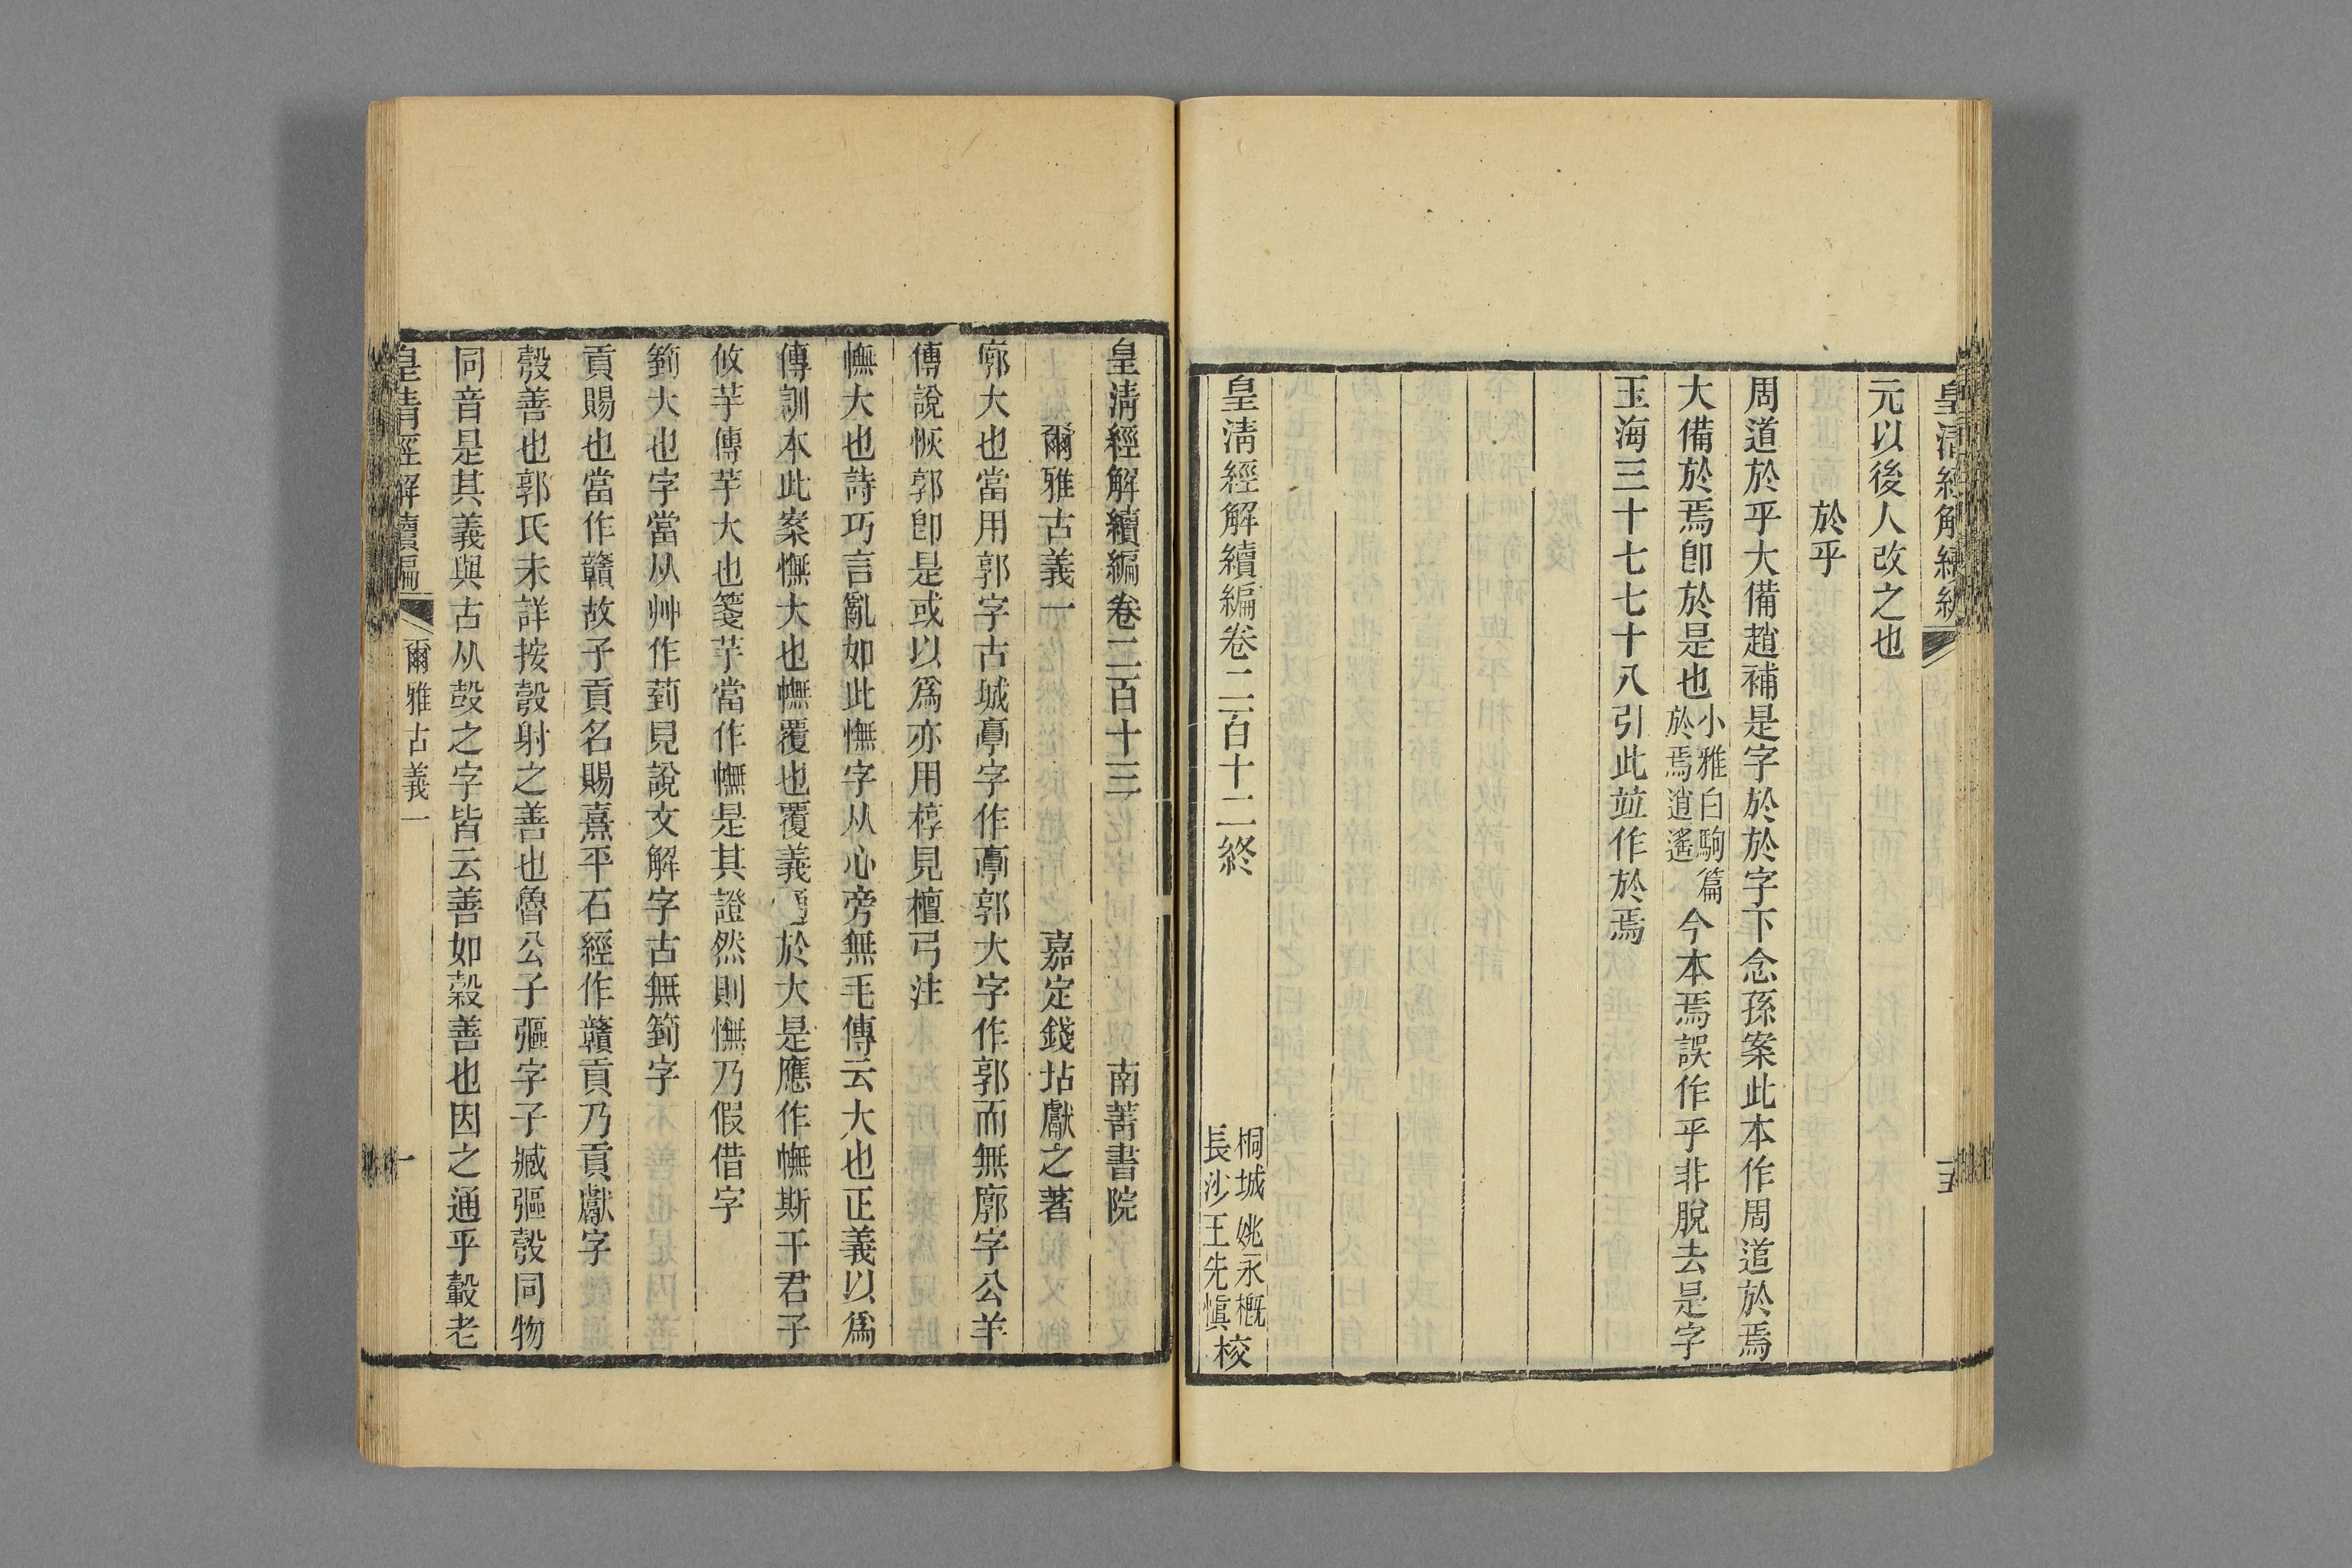 皇清經解續編
元以後人改之也
於乎
周道於乎大備趙補是字於於字下念孫案此本作周道於焉
大備於焉卽於是也小雅白駒篇於焉逍遙今本焉誤作乎非脫去是字
玉海三十七七十八引此竝作於焉
皇清經解續編卷二百十二終
桐城姚永概
長沙王先愼校
皇清經解續編卷二百十三
南菁書院
爾雅古義一
嘉定錢坫獻之著
廓大也當用郭字古城𩫏字作𩫏郭大字作郭而無廓字公羊
傳說恢郭卽是或以爲亦用椁見檀弓注
幠大也詩巧言亂如此幠字从心旁無毛傳云大也正義以爲
傳訓本此案憮大也幠覆也覆義通於大是應作幠斯干君子
攸芋傳芋大也箋芋當作幠是其證然則憮乃假借字
箌大也字當从艸作菿見說文解字古無箌字
貢賜也當作贛故子貢名賜熹平石經作贛貢乃貢獻字
彀善也郭氏未詳按彀射之善也魯公子彄字子臧彄彀同物
同音是其義與古从㱿之字皆云善如穀善也因之通乎轂老
皇清經解續編
爾雅古義一
一